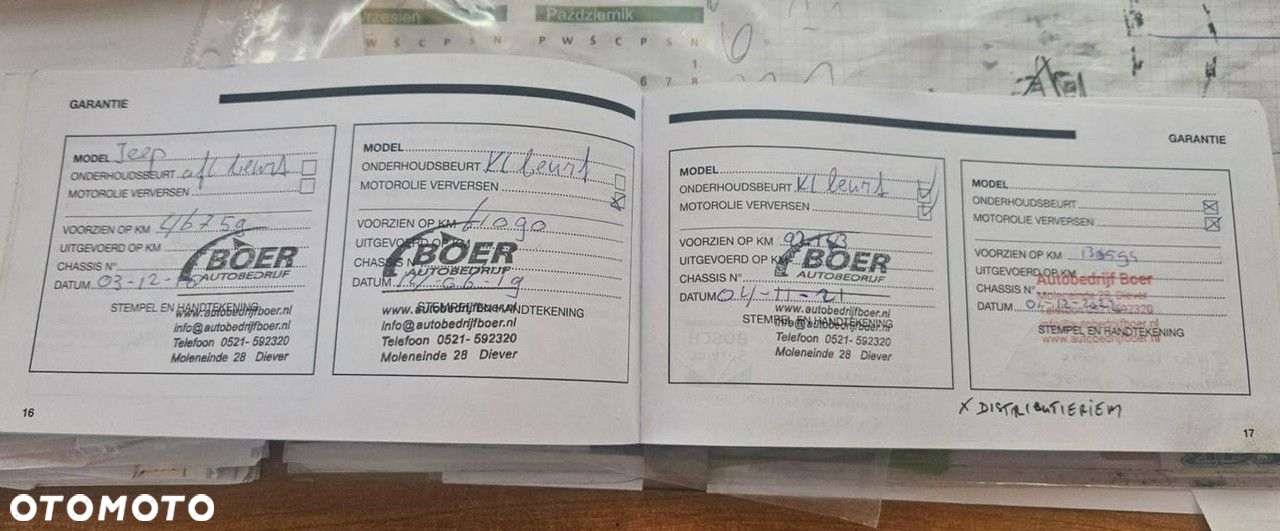 rzesień
Październik
W Ś C P S N
P W Ś C P S N
1
6 7 8
GARANTIE
MODEL Jeep
ONDERHOUDSBEURT afl beurt
MOTOROLIE VERVERSEN
VOORZIEN OP KM 46759
UITGEVOERD OP KM
CHASSIS N°
DATUM 03-12-
BOER
AUTOBEDRIJF
STEMPEL EN HANDTEKENING
www.autobedrijfboer.nl
info@autobedrijfboer.nl
Telefoon 0521-592320
Moleneinde 28 Diever
16
MODEL
ONDERHOUDSBEURT Kl beurt
MOTOROLIE VERVERSEN
VOORZIEN OP KM 61090
UITGEVOERD OP KM
CHASSIS N°
DATUM 06-19
BOER
AUTOBEDRIJF
STEMPEL EN HANDTEKENING
www.autobedrijfboer.nl
info@autobedrijfboer.nl
Telefoon 0521-592320
Moleneinde 28 Diever
GARANTIE
MODEL
ONDERHOUDSBEURT Kl beurt
MOTOROLIE VERVERSEN
VOORZIEN OP KM
UITGEVOERD OP KM
CHASSIS N°
DATUM 04-11-21
BOER
AUTOBEDRIJF
STEMPEL EN HANDTEKENING
www.autobedrijfboer.nl
info@autobedrijfboer.nl
Telefoon 0521-592320
Moleneinde 28 Diever
MODEL
ONDERHOUDSBEURT
MOTOROLIE VERVERSEN
VOORZIEN OP KM
UITGEVOERD OP KM
CHASSIS N°
DATUM
Autobedrijf Boer
Moleneinde 28 Diever
STEMPEL EN HANDTEKENING
www.autobedrijfboer.nl
X DISTRIBUTIERIEM
17
OTOMOTO